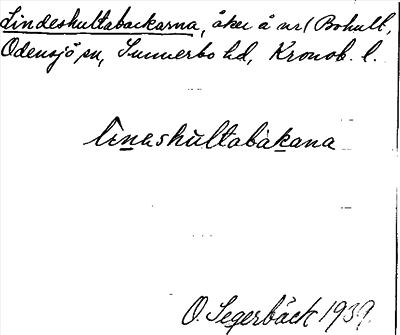 Lindeshultabackarna, åker å nr 1 Bohult,
Odensjö sn, Sunnerbo hd, Kronob. l.
lìnəshùltabàkana
O. Segerbäck 1939.